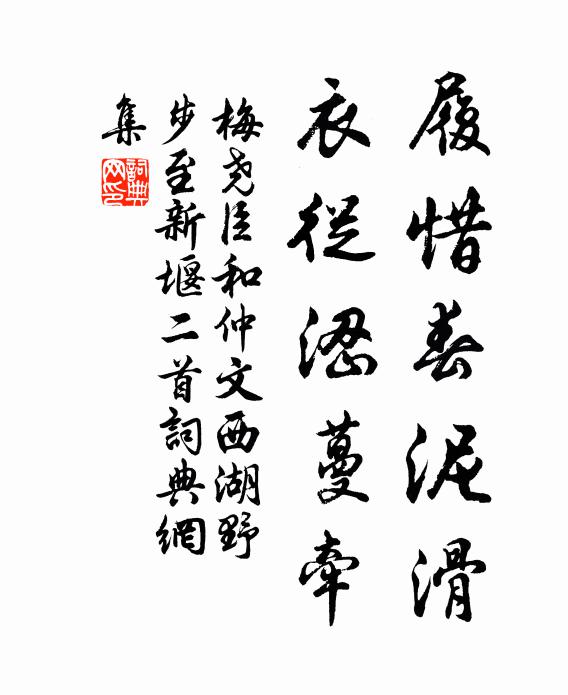 履惜春泥滑
衣從澀蔓牽
梅堯臣和仲文西湖野
步至新堰二首詞典網
集
詞典
网印